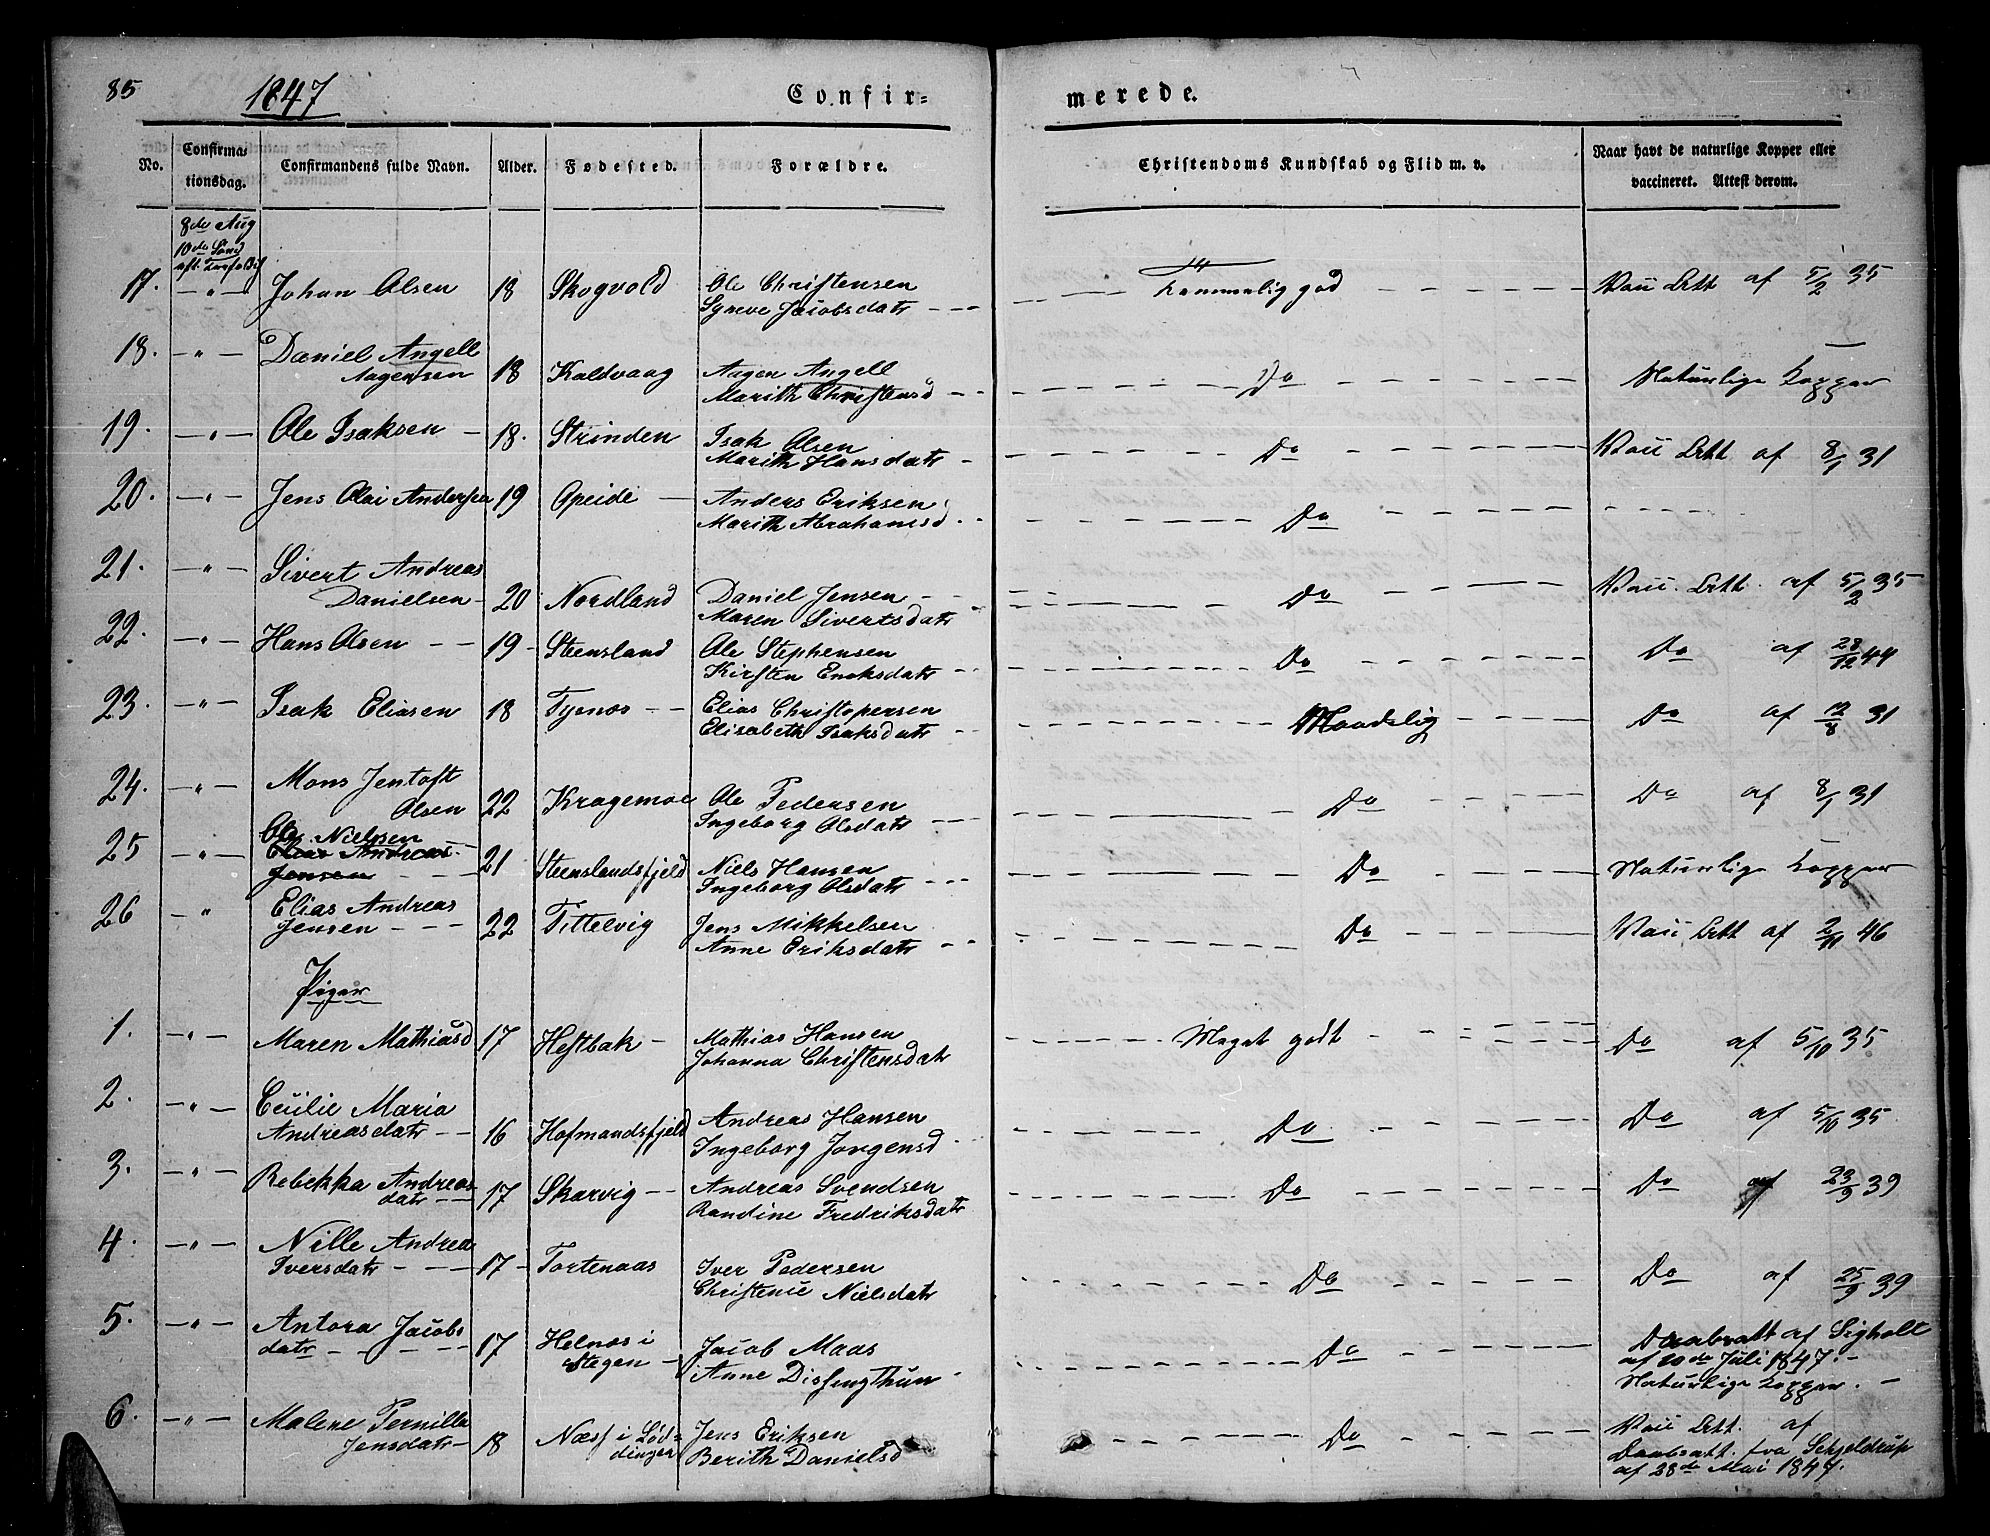 85 1847 Confir= merede.
No. Confirma- tionsdag. Confirmandens fulde Navn. Alder. Fødested. Forældre. Christendoms Kundskab og Flid m. v. Naar havt de naturlige Kopper eller vaccineret. Attest derom.
8de Aug
10de Sönd
17. — " — Johan Olsen 18 Skogvold Ole Christensen Temmelig god Vacc Attt af 5/2 35
Syneve Jacobsdatr
18. — " — Daniel Angell
Aagensen 18 Kaldvaag Aagen Angell Do Naturlige Kopper
Marith Christensd
19. — " — Ole Isaksen 18. Strinden Isak Olsen Do Vacc Attt af 8/1 31
Marith Hansdatr
20. — " — Jens Olai Andersen 19 Opeide Anders Eriksen Do
Marith Abrahamsd.
21. — " — Sivert Andreas
Danielsen 20 Nordland Daniel Jensen Do Vacc. Attt. af 5/2 35
Maren Sivertsdatr
22. — " — Hans Olsen 19 Steensland Ole Stephensen Do Do af 28/12 44
Kirsten Enoksdatr
23. — " — Isak Eliasen 18 Tysnæs Elias Christopersen Maadelig Do af 12/8 31
Elisabeth Isaksdatr
24. — " — Mons Jentoft
Olsen 22 Kragemoe Ole Pedersen Do Do af 8/1 31
Ingeborg Olsdatr
25 — " — Ole Nielsen
Elias Andreas
Jensen 21 Steenslandsfjeld Niels Hansen Do Naturlige Kopper
Ingeborg Olsdatr
26 — " Elias Andreas
Jensen 22 Tittelvig Jens Mikkelsen Do Vacc Attt af 2/11 46
Anne Eriksdatr
Piger
1. — " — Maren Mathiasd 17 Hestbak Mathias Hansen Meget godt Do af 5/10 35
Johanna Christensdatr
2. — " — Cecilie Maria
Andreasdatr 16 Hofmandsfjeld Andreas Hansen Do Do af 5/10 35
Ingeborg Jorgensd
3. — " — Rebekka Andreas
datr 17 Skarvig Andreas Svendsen Do Do af 23/9 39
Randine Fredriksdatr
4. — " — Nille Andrea
Iversdatr 17 Tortenaas Iver Pedersen Do Do af 25/9 39
Christence Nielsdatr
5. — " — Antora Jacobs
datr 17 Helnæs i
Stegen Jacob Maas Do Daabsatt af Sigholt
af 20de Juli 1847.
Anne Naturlige Kopper.
6. — " — Malene Pernilla
Jensdatr 18 Næss i Lød=
dingen Jens Eriksen Do Vacc Att. af
Berith Danielsd Daabsatt. fra Schjeldrup
af 28de Mai 1847.